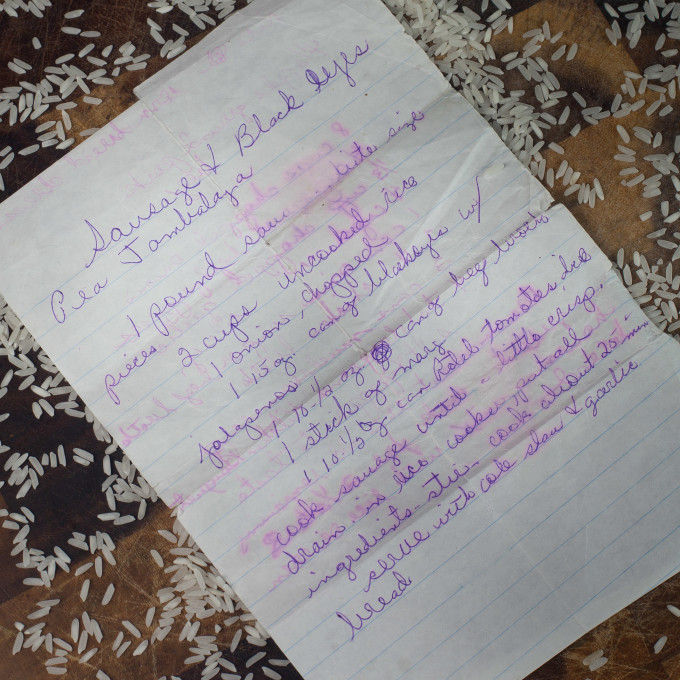 Sausage & Black Eyes
Pea Jambalaya
1 pound saus in bite size
pieces
2 cups uncooked rice
1 onion, chopped
1 15 oz. can of blackeyes w/
jalapenos
1 10-1/2 oz. can of beef broth
1 stick of marg
1 10-1/2 oz can Rotel tomatoes, dice
cook sausage until a little crisp.
drain. in rice cooker, put all
ingredients - stir - cook about 25 min
serve with cole slaw & garlic
bread